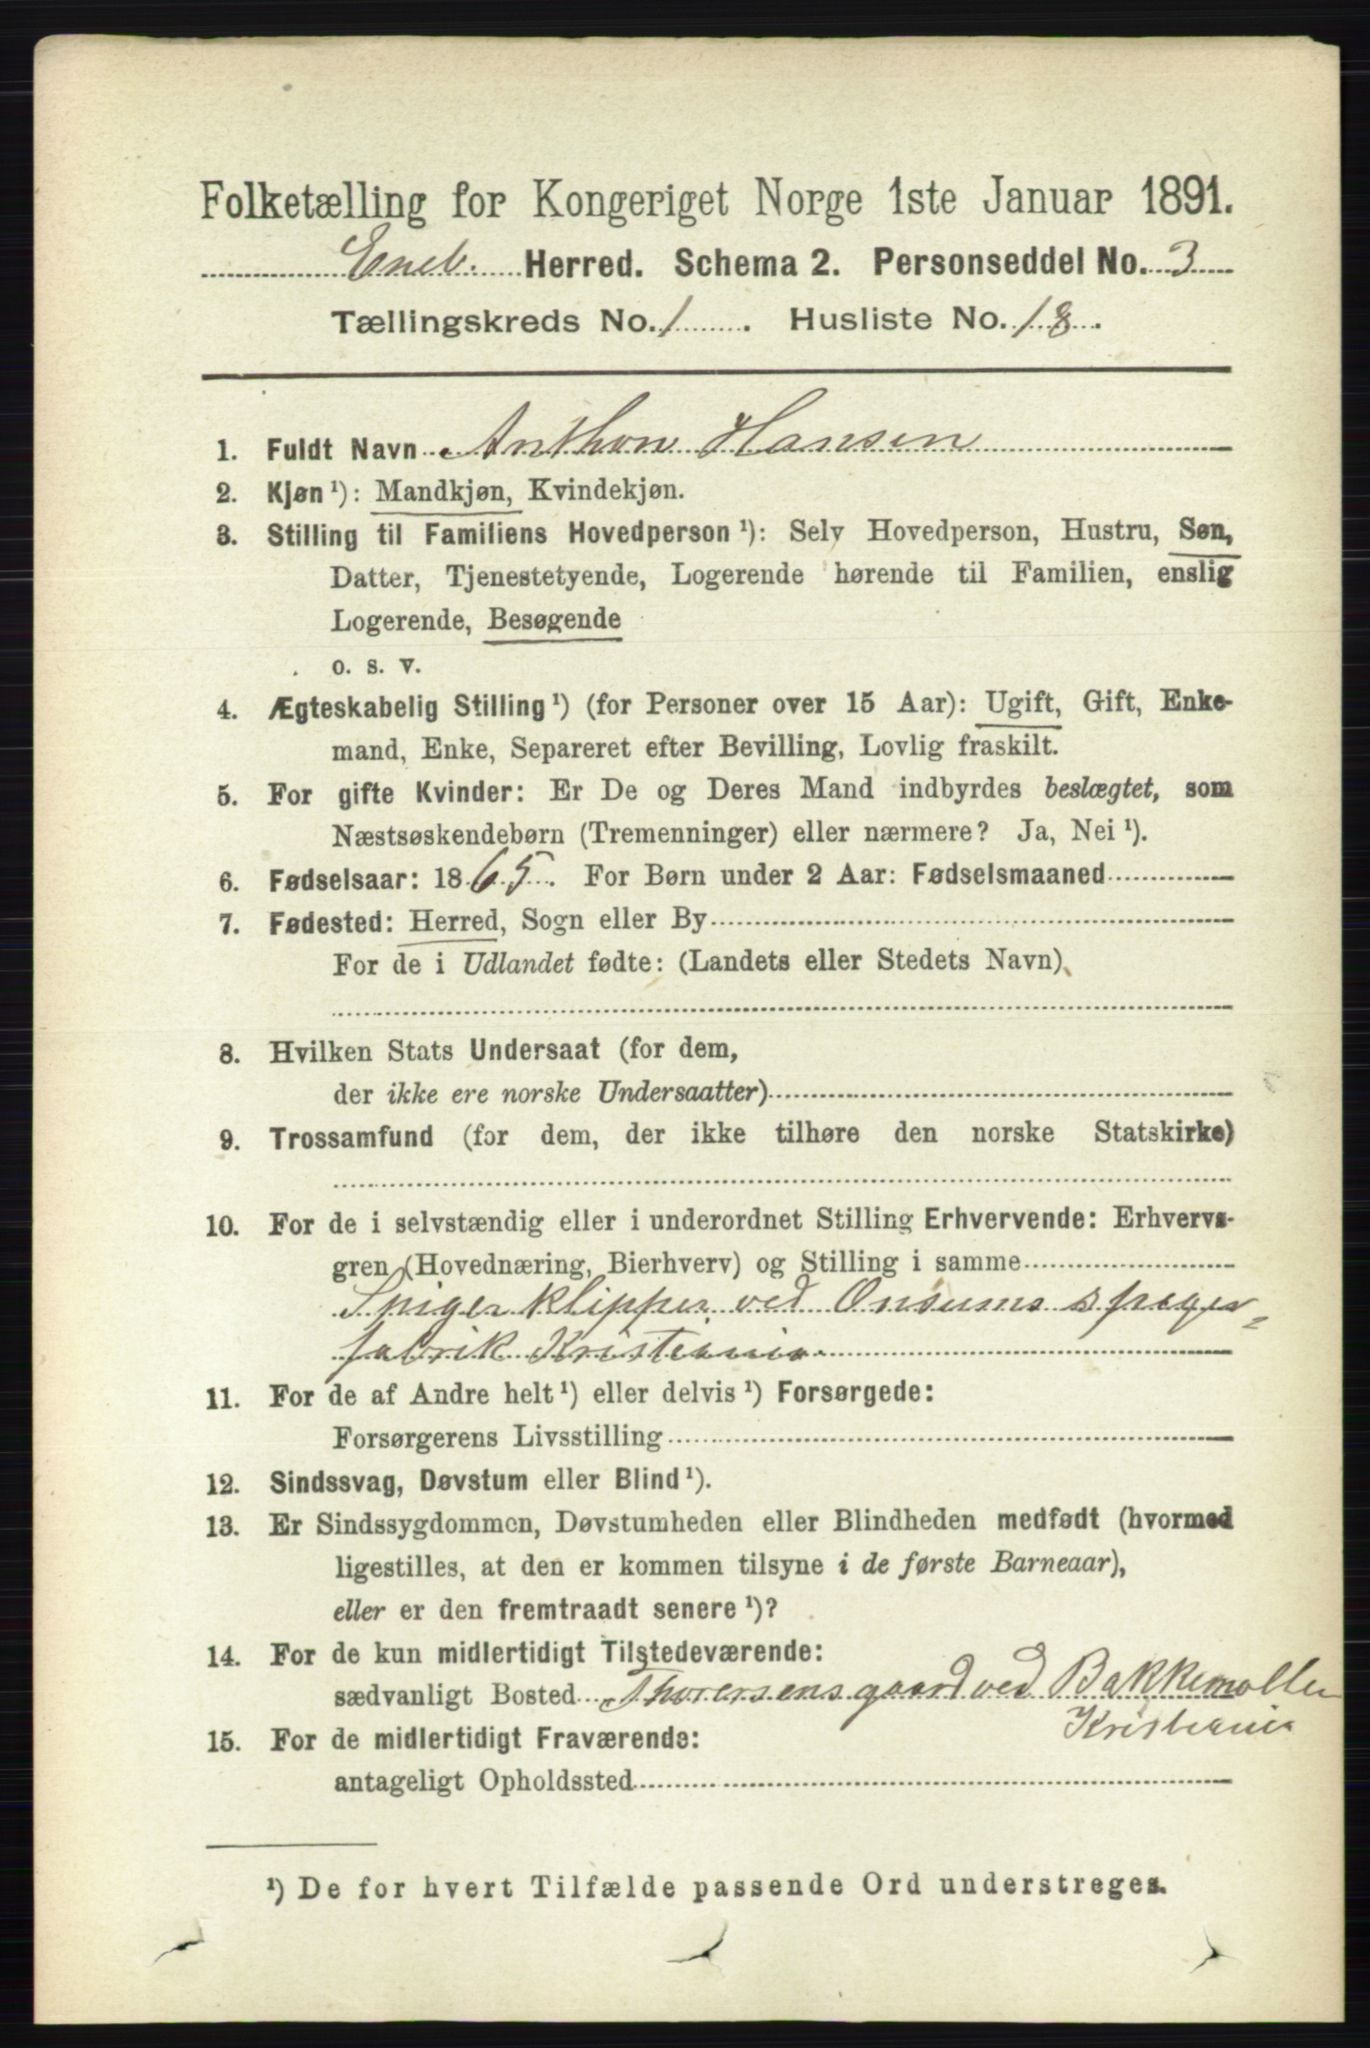 Folketælling for Kongeriget Norge 1ste Januar 1891.
Eneb. Herred. Schema 2. Personseddel No. 3
Tællingskreds No. 1. Husliste No. 18.
1. Fuldt Navn Anthon Hansen
2. Kjøn ¹): Mandkjøn, Kvindekjøn.
3. Stilling til Familiens Hovedperson ¹): Selv Hovedperson, Hustru, Søn,
Datter, Tjenestetyende, Logerende hørende til Familien, enslig
Logerende, Besøgende
o. s. v.
4. Ægteskabelig Stilling ¹) (for Personer over 15 Aar): Ugift, Gift, Enke-
mand, Enke, Separeret efter Bevilling, Lovlig fraskilt.
5. For gifte Kvinder: Er De og Deres Mand indbyrdes beslægtet, som
Næstsøskendebørn (Tremenninger) eller nærmere? Ja, Nei ¹).
6. Fødselsaar: 1865. For Børn under 2 Aar: Fødselsmaaned
7. Fødested: Herred, Sogn eller By
For de i Udlandet fødte: (Landets eller Stedets Navn)
8. Hvilken Stats Undersaat (for dem,
der ikke ere norske Undersaatter)
9. Trossamfund (for dem, der ikke tilhøre den norske Statskirke)
10. For de i selvstændig eller i underordnet Stilling Erhvervende: Erhvervs-
gren (Hovednæring, Bierhverv) og Stilling i samme
Spigerklipper ved Onsums spiger=
fabrik Kristiania
11. For de af Andre helt ¹) eller delvis ¹) Forsørgede:
Forsørgerens Livsstilling
12. Sindssvag, Døvstum eller Blind ¹).
13. Er Sindssygdommen, Døvstumheden eller Blindheden medfødt (hvormed
ligestilles, at den er kommen tilsyne i de første Barneaar),
eller er den fremtraadt senere ¹)?
14. For de kun midlertidigt Tilstedeværende:
sædvanligt Bosted Thoresensgaard ved Bakkemøllen
Kristiania
15. For de midlertidigt Fraværende:
antageligt Opholdssted
¹) De for hvert Tilfælde passende Ord understreges.